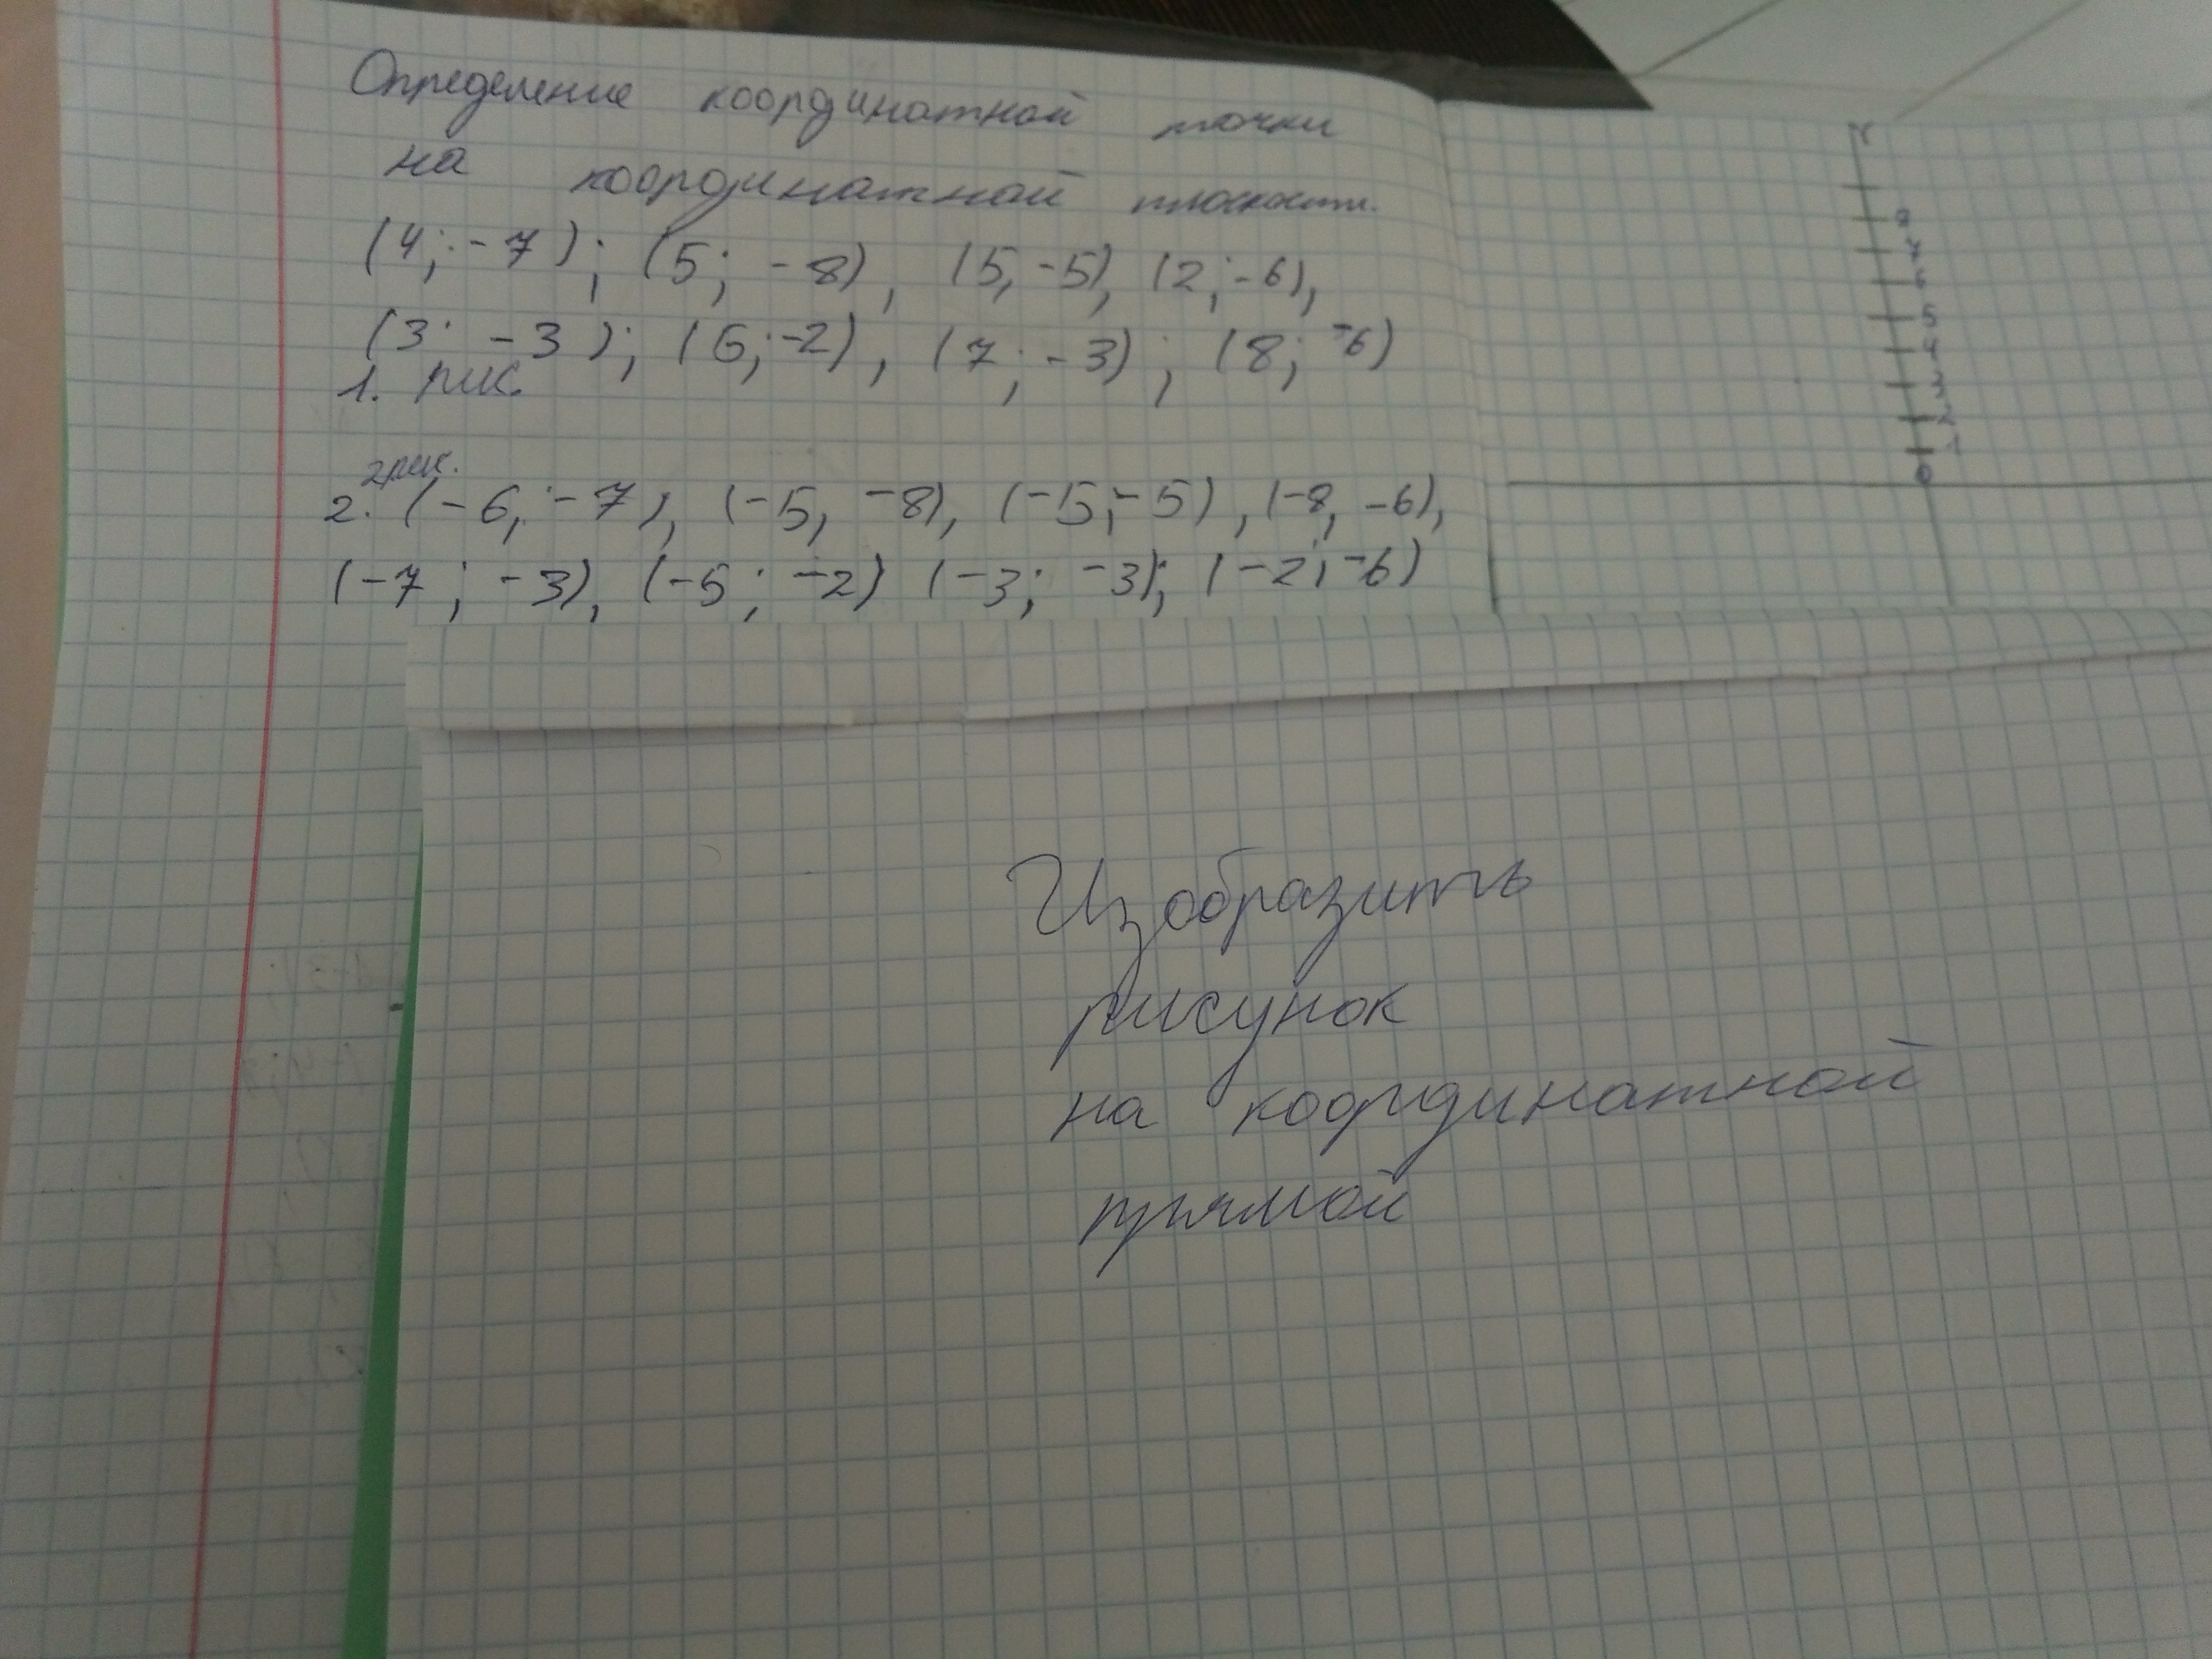 Определение координатной точки
на координатной плоскости.
(4; -7); (5; -8), (5, -5), (2; -6),
(3; -3); (6; -2), (7; -3); (8; -6)
1. рис.
2 рис.
2. (-6; -7), (-5, -8), (-5; -5), (-8, -6),
(-7; -3), (-5; -2) (-3; -3); (-2; -6)
8
7
6
5
4
3
2
1
0
Изобразить
рисунок
на координатной
прямой